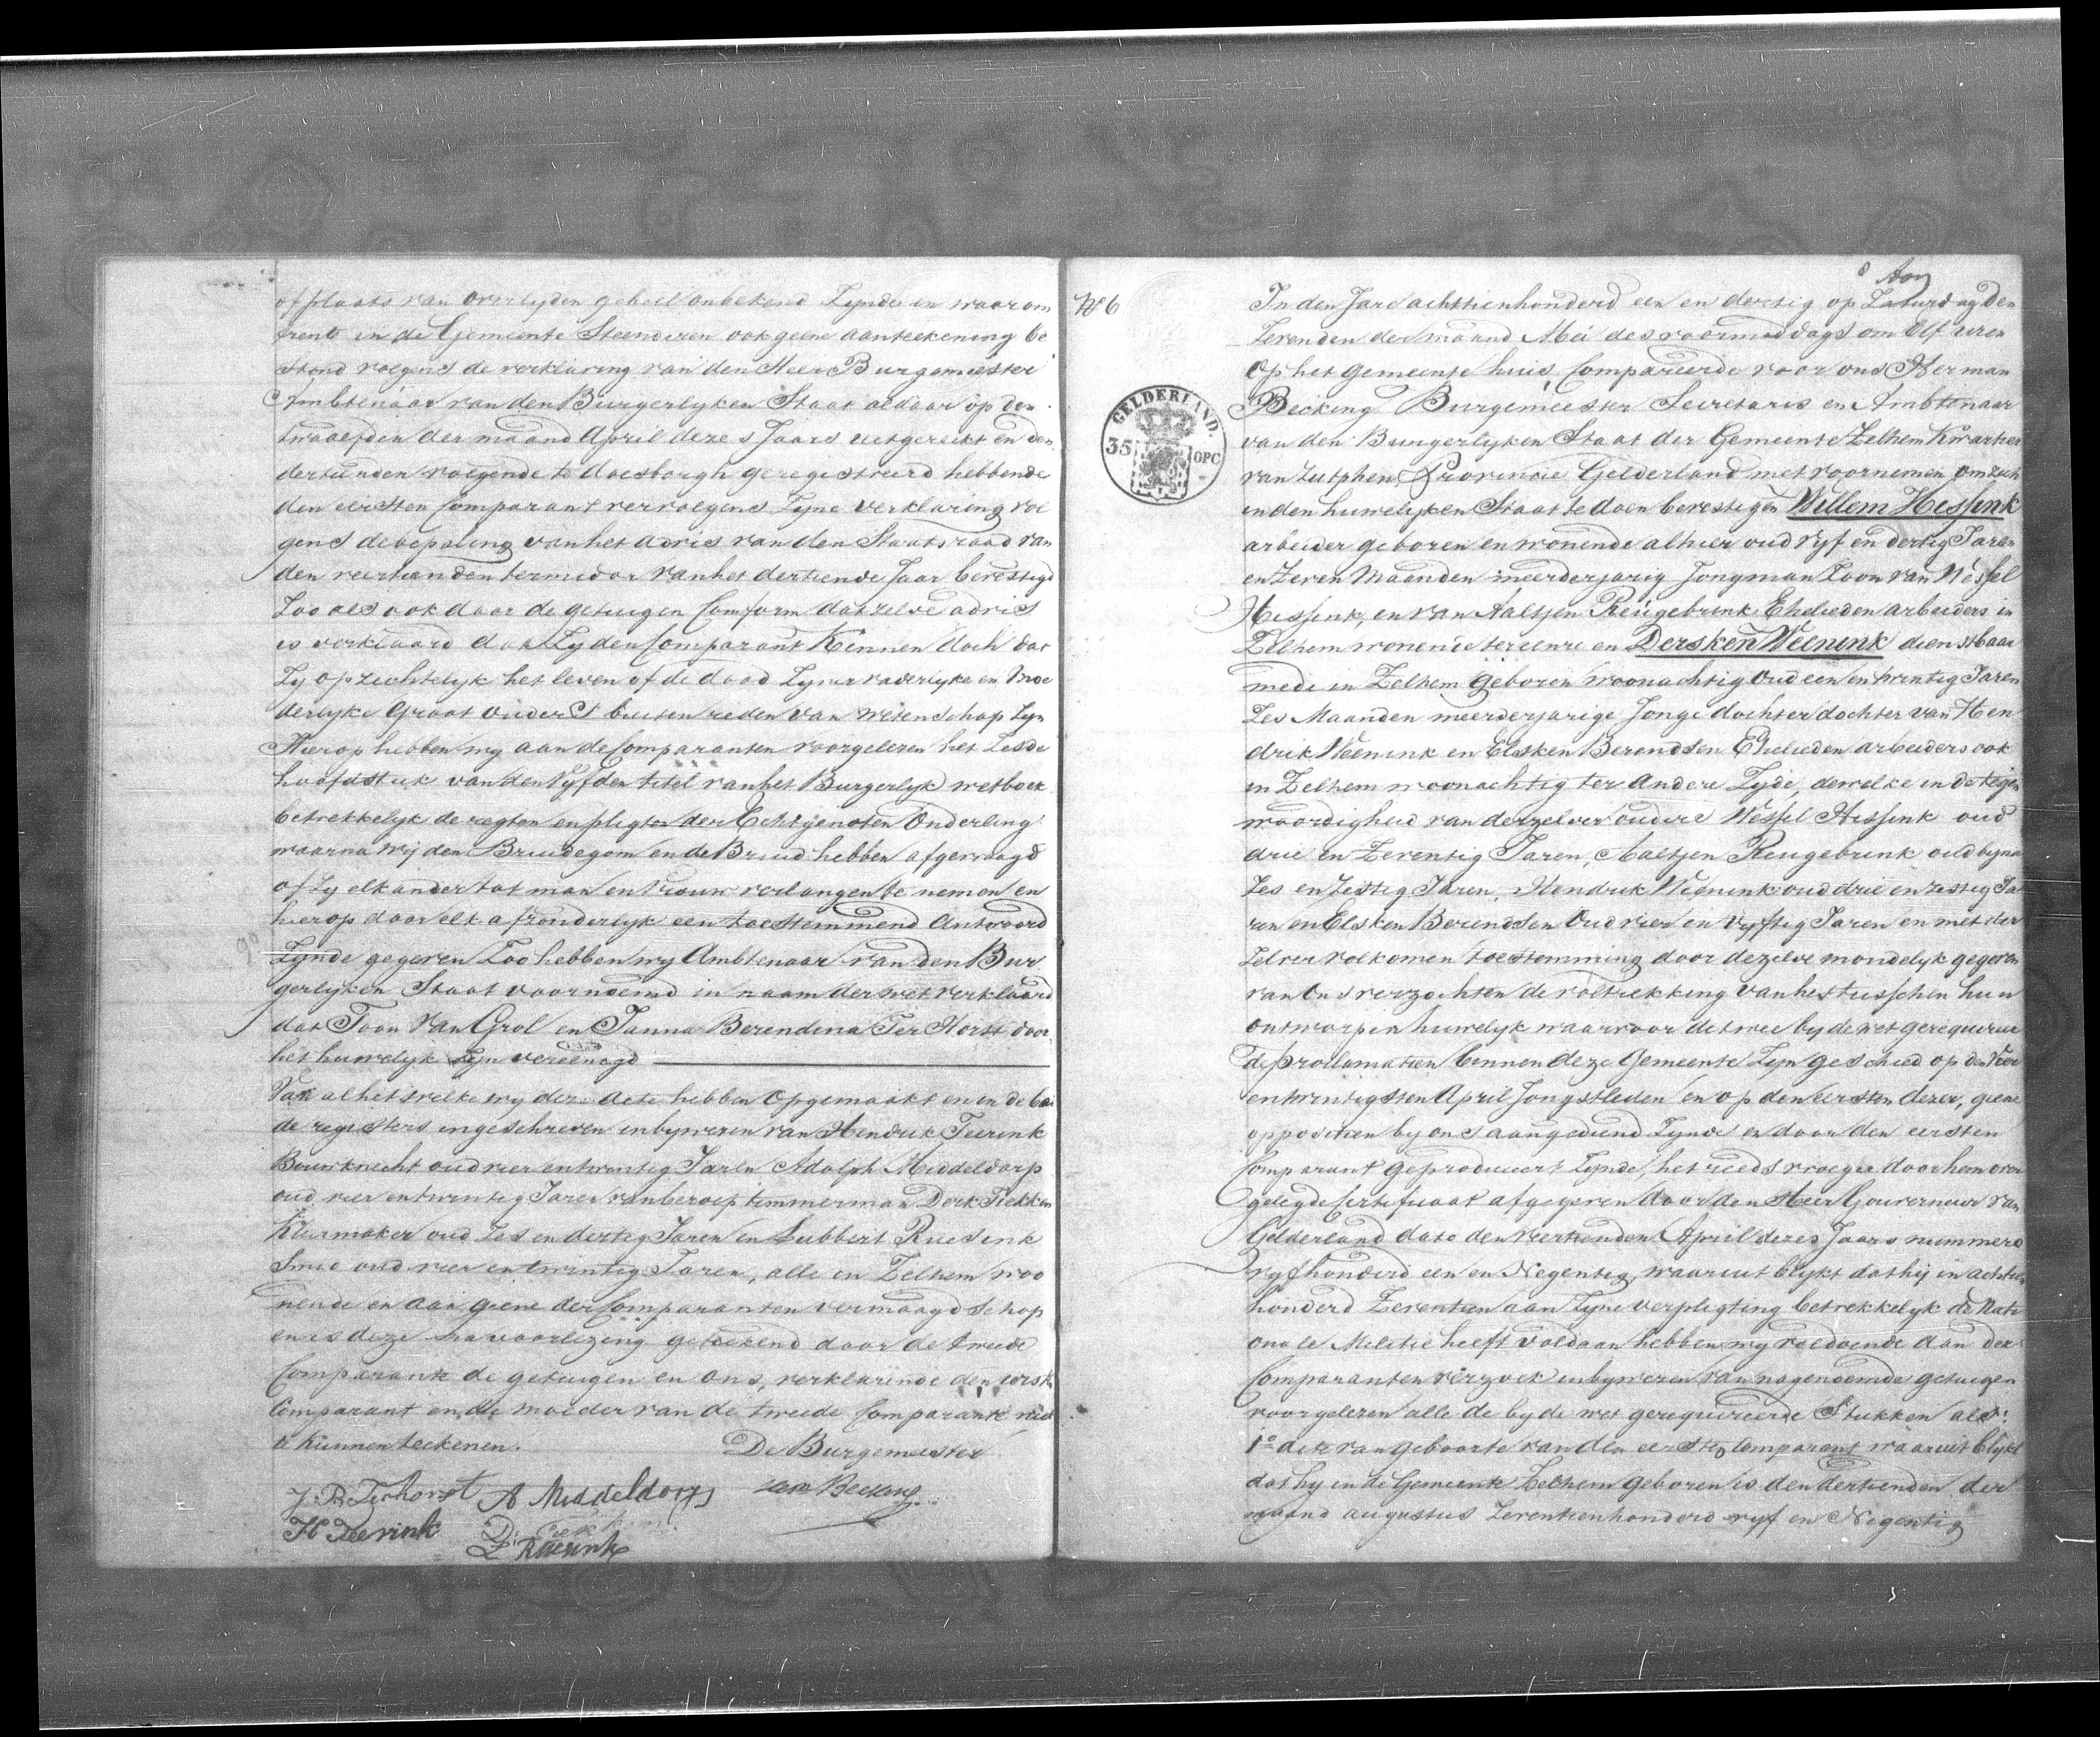 of plaats van overlyden geheel onbekend Zynde en waarom
trent in de Gemeente Steenderen ook geene aanteekening be
stond volgens de verklaring van den Heer Burgemeester
Ambtenaar van den Burgerlyken Staat aldaar op den
twaalfden der maand April dezes Jaars uitgereikt en den
dertienden volgende te doesborgh geregistreerd hebbende
den eersten Comparant vervolgens Zyne verklaring vol
gens de bepaling van het advis van den Staatsraad van
den veertienden termidor van het dertiende Jaar bevestigd
Zoo als ook door de getuigen Comform dat zelve advies
is verklaard dat Zy den Comparant Kennen doch dat
Zy opzechtelyk het leven of de dood Zyner vaderlyke en Moe
derlyke Groot ouders buiten reden van wetenschap Zyn
Hierop hebben wy aan de Comparanten voorgelezen het Zesde
hoofdstuk van den Vyfden titel van het Burgerlyk wetboek
betrekkelyk de regten en pligten der Echtgenoten Onderling
waarna wij den Bruidegom en de Bruid hebben afgevraagd
of Zy elkander tot man en Vrouw verlangen te nemen en
hierop door elk afzonderlyk een toestemmend Antwoord
Zynde gegeven Zoo hebben wy Ambtenaar van den Bur
gerlyken Staat voornoemd in naam der wet verklaard
dat Toon Van Grol en Janna Berendina Ter Horst door
het huwelyk Zyn vereenigd
Van al het welke wy dez Acte hebben Opgemaakt en in de bei
de registers ingeschreven in bywezen van Hendrik Teerink
Bouwknecht oud vier entwintig Jaren Adolph Middeldorp
oud vier entwintig Jaren van beroep timmerman Derk Tiekken
Klermaker oud Zes en dertig Jaren en Lubbert Ruesink
Smid oud vier entwintig Jaren, alle in Zelhem woo
nende en aan geene der Comparanten vermaagdschap
en is deze na voorlezing geteekend door de tweede
Comparante de getuigen en Ons, verklarende den eerste
Comparant en de moeder van de tweede Comparante niet
te Kunnen teekenen.
De Burgemeester
J. B. Terhorst A Middeldorp
H Teerink D. Tiekken
L. Ruesink
8
№ 6
GELDERLAND.
35 OPC
In den Jare achttienhonderd een en dertig op Zaturdag den
Zevenden der maand Mei des voormiddags om Elf uren
Op het gemeente huis Compareerde voor ons Herman
Becking Burgemeester Secretaris en Ambtenaar
van den Burgerlyken Staat der Gemeente Zelhem Kwartier
van Zutphen, Provincie Gelderland met voornemen om zich
in den huwelyken Staat te doen bevestigen Willem Hessink
arbeider geboren en wonende alhier oud vyf en dertig Jaren
en Zeven Maanden meerderjarig Jongman Zoon van Wessel
Hessink, en van Aaltjen Reugebrink Ehelieden arbeiders in
Zelhem wonende ter eenre en Dersken Weenink dienstbaar
mede in Zelhem geboren woonachtig Oud een en twintig Jaren
Zes Maanden meerderjarige Jonge dochter dochter van Hen
drik Weenink en Elsken Berendsen Ehelieden arbeiders ook
in Zelhem woonachtig ter Andere Zyde, dewelke in de tegen
woordigheid van derzelver ouders Wessel Hessink oud
drie en Zeventig Jaren, Aaltjen Reugebrink oud byna
Zes en Zestig Jaren, Hendrik Weenink oud drie en zestig Ja
ren en Elsken Berendsen Oud vier en vyftig Jaren en met der
Zelver volkomen toestemming door dezelve mondelyk gegeven
van Ons verzochten de voltrekking van het tusschen hun
ontworpen huwelyk waarvoor de twee by de wet gerequireer
de proclamatien binnen deze Gemeente Zyn geschied op den Vier
entwintigsten April Jongstleden en op den eersten dezer, geene
oppositien by ons aangediend Zynde en door den eersten
Comparant geproduceert Zynde, het reeds vroeger door hem over
gelegde sertificaat afgegeven door den Heer Gouverneur van
Gelderland dato den veertienden April dezes Jaars nummero
vyfhonderd een en Negentig, waaruit blykt dat hij in achttien
honderd Zeventien aan Zyne verpligting betrekkelyk de Nati
onale Militie heeft voldaan hebben wy voldoende aan der
Comparanten verzoek in bywezen van nagenoemde getuigen
voorgelezen alle de by de wet gerequireerde Stukken als:
1º acte van geboorte van den eersten Comparant waaruit blykt
dat hy in de Gemeente Zelhem geboren is den dertienden der
maand augustus Zeventienhonderd vyf en Negentig